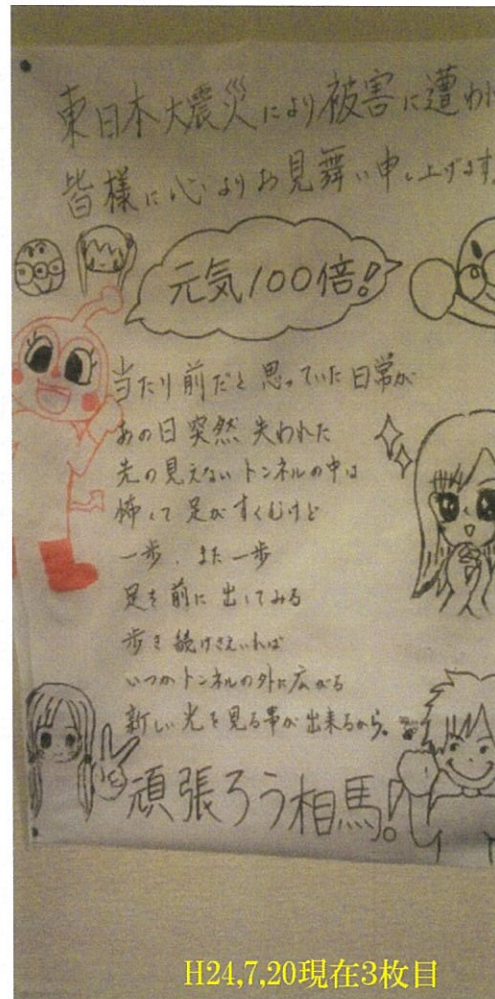 東日本大震災により被害に遭わ
皆様に心よりお見舞い申し上げます
元気100倍!
当たり前だと思っていた日常が
あの日突然失われた
先の見えないトンネルの中は
怖くて足がすくむけど
一歩、また一歩
足を前に出してみる
歩き続けさえいれば
いつかトンネルの外に広がる
新しい光を見る事が出来るから。
頑張ろう相馬!
H24,7,20現在3枚目